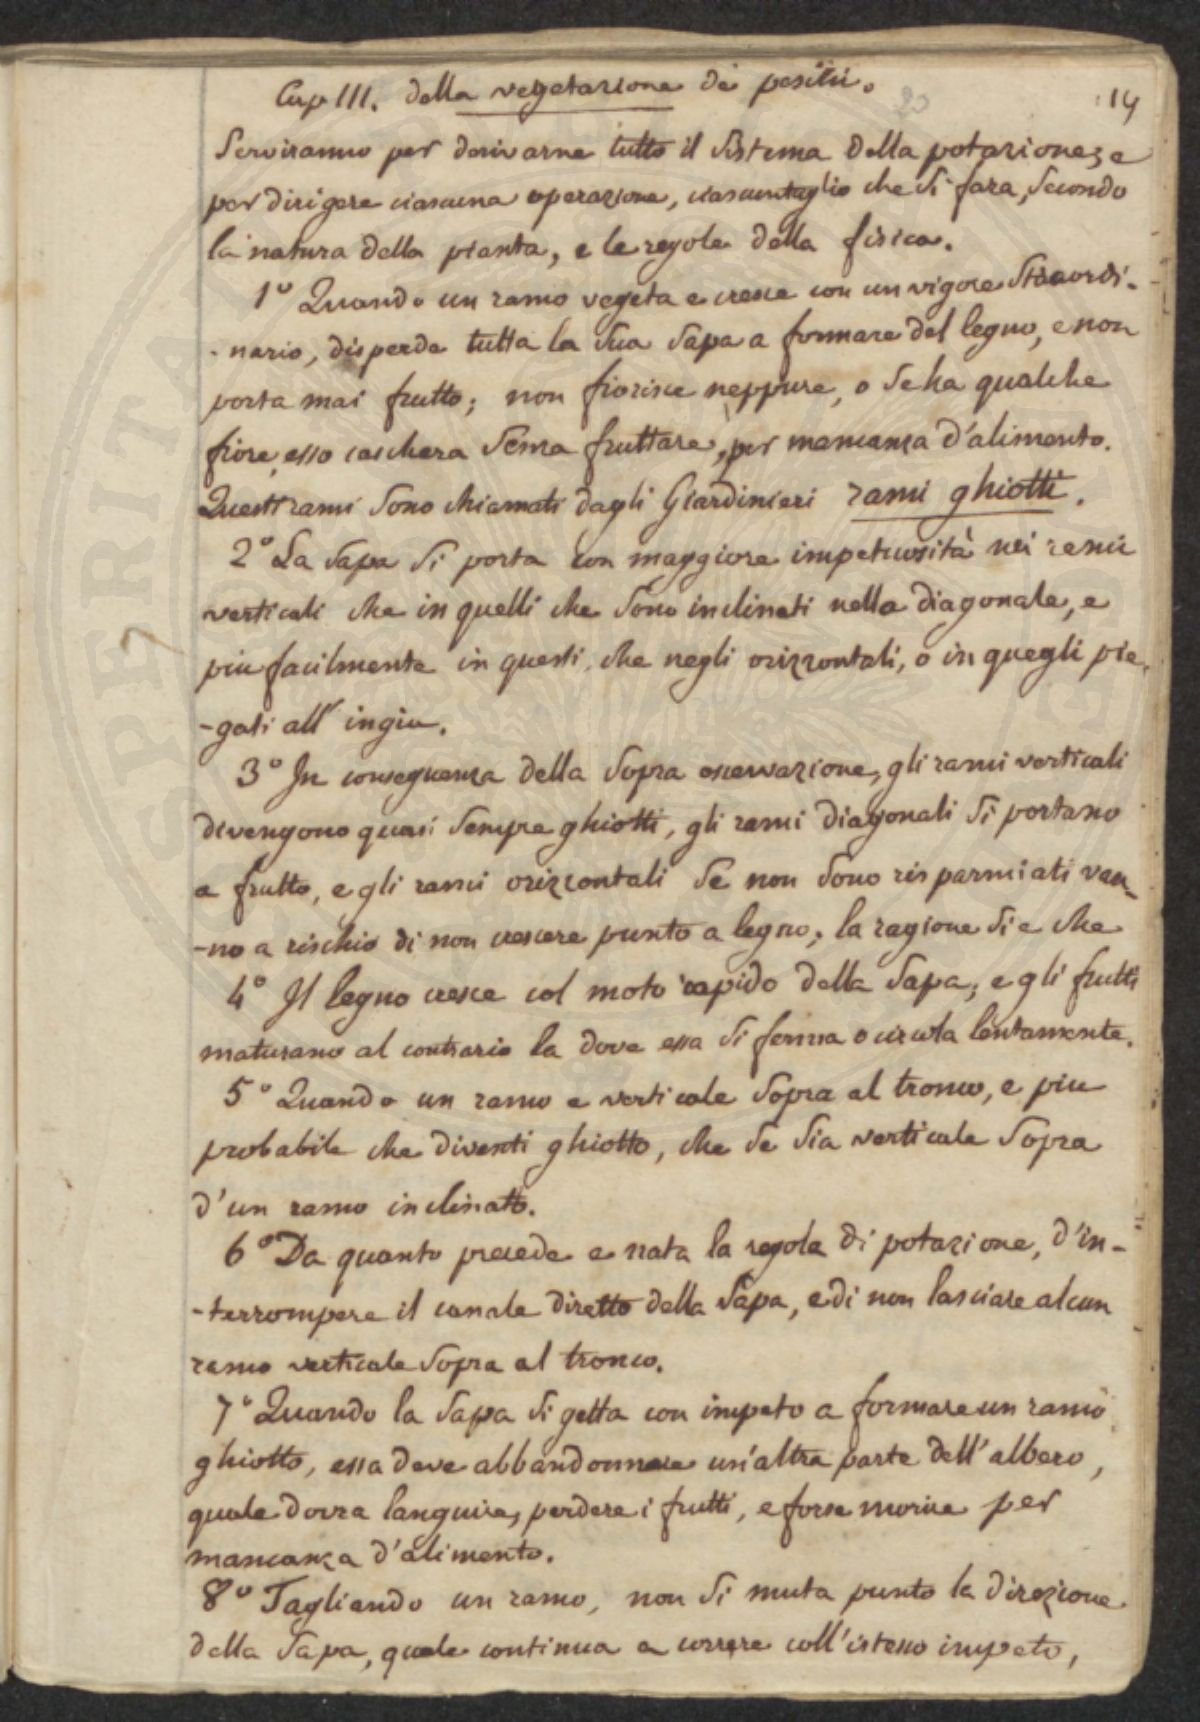 Cap III. della vegetazione dè pesitii.
20
14
Serviranno per derivarne tutto il Sistema della potazione, e
per dirigere ciascuna operazione, ciascuntaglio che Si fara, Secondo
la natura della pianta, e le regole della fisica.
1° Quando un ramo vegeta e cresce con un vigore Straordi-
-nario, disperde tutta la Sua Sapa a formare del legno, e non
porta mai frutto; non fiorisce neppure, o Se ha qualche
fiore esso caschera Senza fruttare, per mancanza d'alimento.
Questi rami Sono chiamati dagli Giardinieri rami ghiotti.
2° La Sapa Si porta con maggiore impetuosità nei rami
verticali che in quelli che Sono inclinati nella diagonale, e
piu facilmente in questi, che negli orizzontali, o in quegli pie-
-gati all' ingiu.
3° In conseguenza della Sopra osservazione, gli rami verticali
divengono quasi Sempre ghiotti, gli rami diagonali Si portano
a frutto, e gli rami orizzontali Se non Sono risparmiati van-
-no a rischio di non crescere punto a legno, la ragione Si e che
4° Il legno cresce col moto rapido della Sapa, e gli frutti
maturano al contrario la dove essa Si ferma o circola lentamente.
5° Quando un ramo e verticale Sopra al tronco, e piu
probabile che diventi ghiotto, che Se Sia verticale Sopra
d'un ramo inclinato.
6° Da quanto precede e nata la regola di potazione, d'in-
-terrompere il canale diretto della Sapa, e di non lasciare alcun
ramo verticale Sopra al tronco.
7° Quando la Sapa Si getta con impeto a formare un ramo
ghiotto, essa deve abbandonnare un'altra parte dell' albero,
quale dovra languire, perdere i frutti, e forse morire per
mancanza d'alimento.
8° Tagliando un ramo, non Si muta punto la direzione
della Sapa, quale continua a correre coll'istesso impeto,